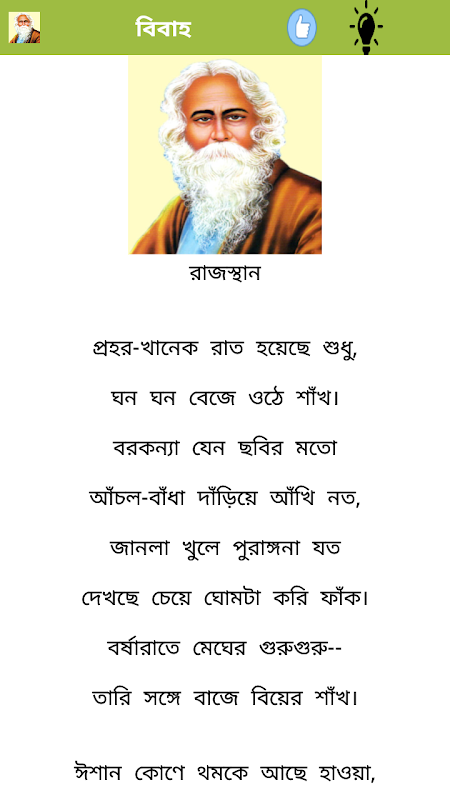 বিবাহ
রাজস্থান
প্রহর-খানেক রাত হয়েছে শুধু,
ঘন ঘন বেজে ওঠে শাঁখ।
বরকন্যা যেন ছবির মতো
আঁচল-বাঁধা দাঁড়িয়ে আঁখি নত,
জানলা খুলে পুরাঙ্গনা যত
দেখছে চেয়ে ঘোমটা করি ফাঁক।
বর্ষারাতে মেঘের গুরুগুরু--
তারি সঙ্গে বাজে বিয়ের শাঁখ।
ঈশান কোণে থমকে আছে হাওয়া,